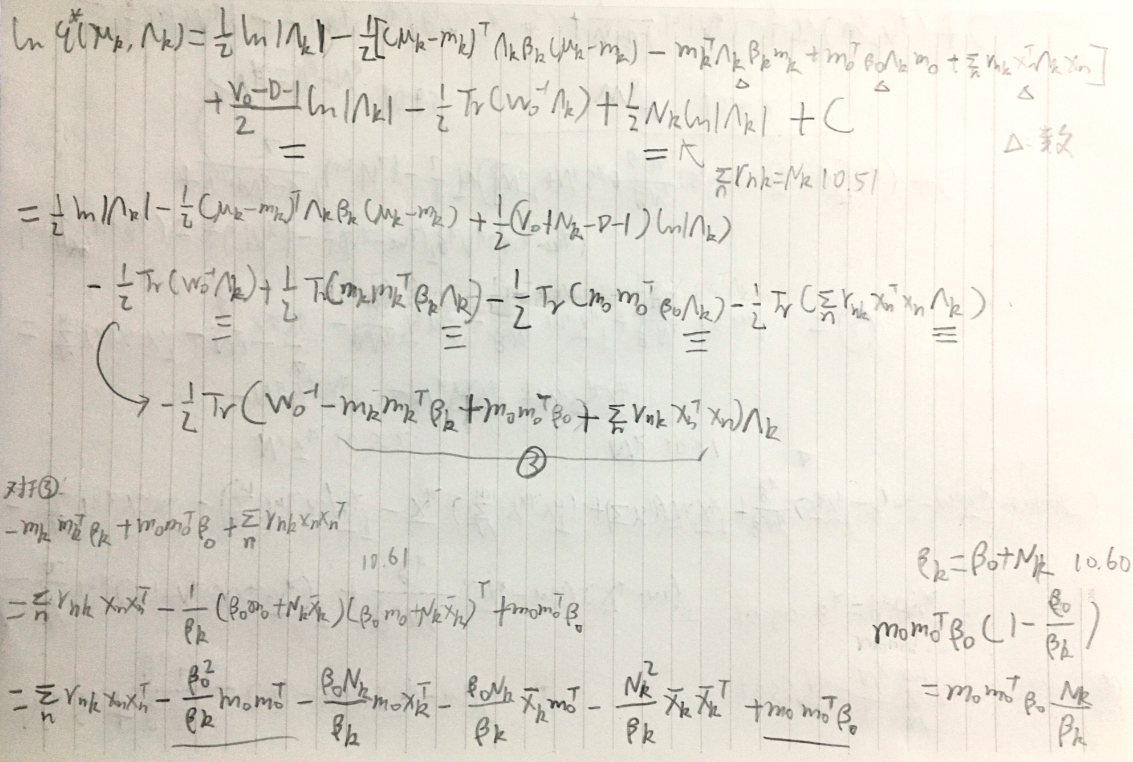 ln q*(μk, Λk) = 1/2 ln|Λk| - 1/2[(μk-mk)^T Λk βk (μk-mk) - mk^T Λk βk mk + m0^T β0 Λk m0 + Σn rnk xn^T Λk xn]
+ (ν0-D-1)/2 ln|Λk| - 1/2 Tr(W0^-1 Λk) + 1/2 Nk ln|Λk| + C
Δ.数
Σn rnk = Nk 10.51
= 1/2 ln|Λk| - 1/2 (μk-mk)^T Λk βk (μk-mk) + 1/2 (ν0+Nk-D-1) ln|Λk)
- 1/2 Tr(W0^-1 Λk) + 1/2 Tr(mk mk^T βk Λk) - 1/2 Tr(m0 m0^T β0 Λk) - 1/2 Tr(Σn rnk xn^T xn Λk)
→ - 1/2 Tr(W0^-1 - mk mk^T βk + m0 m0^T β0 + Σn rnk xn^T xn) Λk
③
对于③:
- mk mk^T βk + m0 m0^T β0 + Σn rnk xn xn^T
10.61
βk = β0 + Nk 10.60
= Σn rnk xn xn^T - 1/βk (β0 m0 + Nk x̄k)(β0 m0 + Nk x̄k)^T + m0 m0^T β0
m0 m0^T β0 (1 - β0/βk)
= Σn rnk xn xn^T - β0^2/βk m0 m0^T - β0 Nk/βk m0 x̄k^T - β0 Nk/βk x̄k m0^T - Nk^2/βk x̄k x̄k^T + m0 m0^T β0
= m0 m0^T β0 Nk/βk